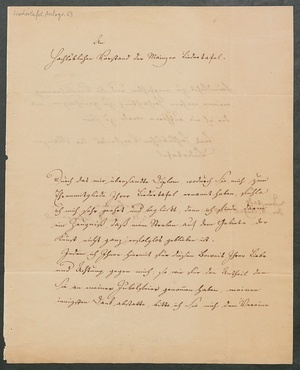 Liedertafel Autogr. 63
An
Hochlöblichen Vorstand der Mainzer Liedertafel.
Durch das mir übersandte Diplom wodurch Sie mich zum
Ehrenmitgliede Ihrer Liedertafel ernannt haben, fühle
ich mich sehr geehrt und beglückt, denn ich finde darin
ein Zeugniß daß mein Streben auf dem Gebiete der
Kunst nicht ganz erfolglos geblieben ist.
Indem ich Ihnen hiermit für diesen Beweis Ihrer Liebe
und Achtung gegen mich so wie für den Antheil den
Sie an meiner Jubelfeier genommen haben, meinen
innigsten Dank abstatte, bitte ich Sie mich dem Vereine